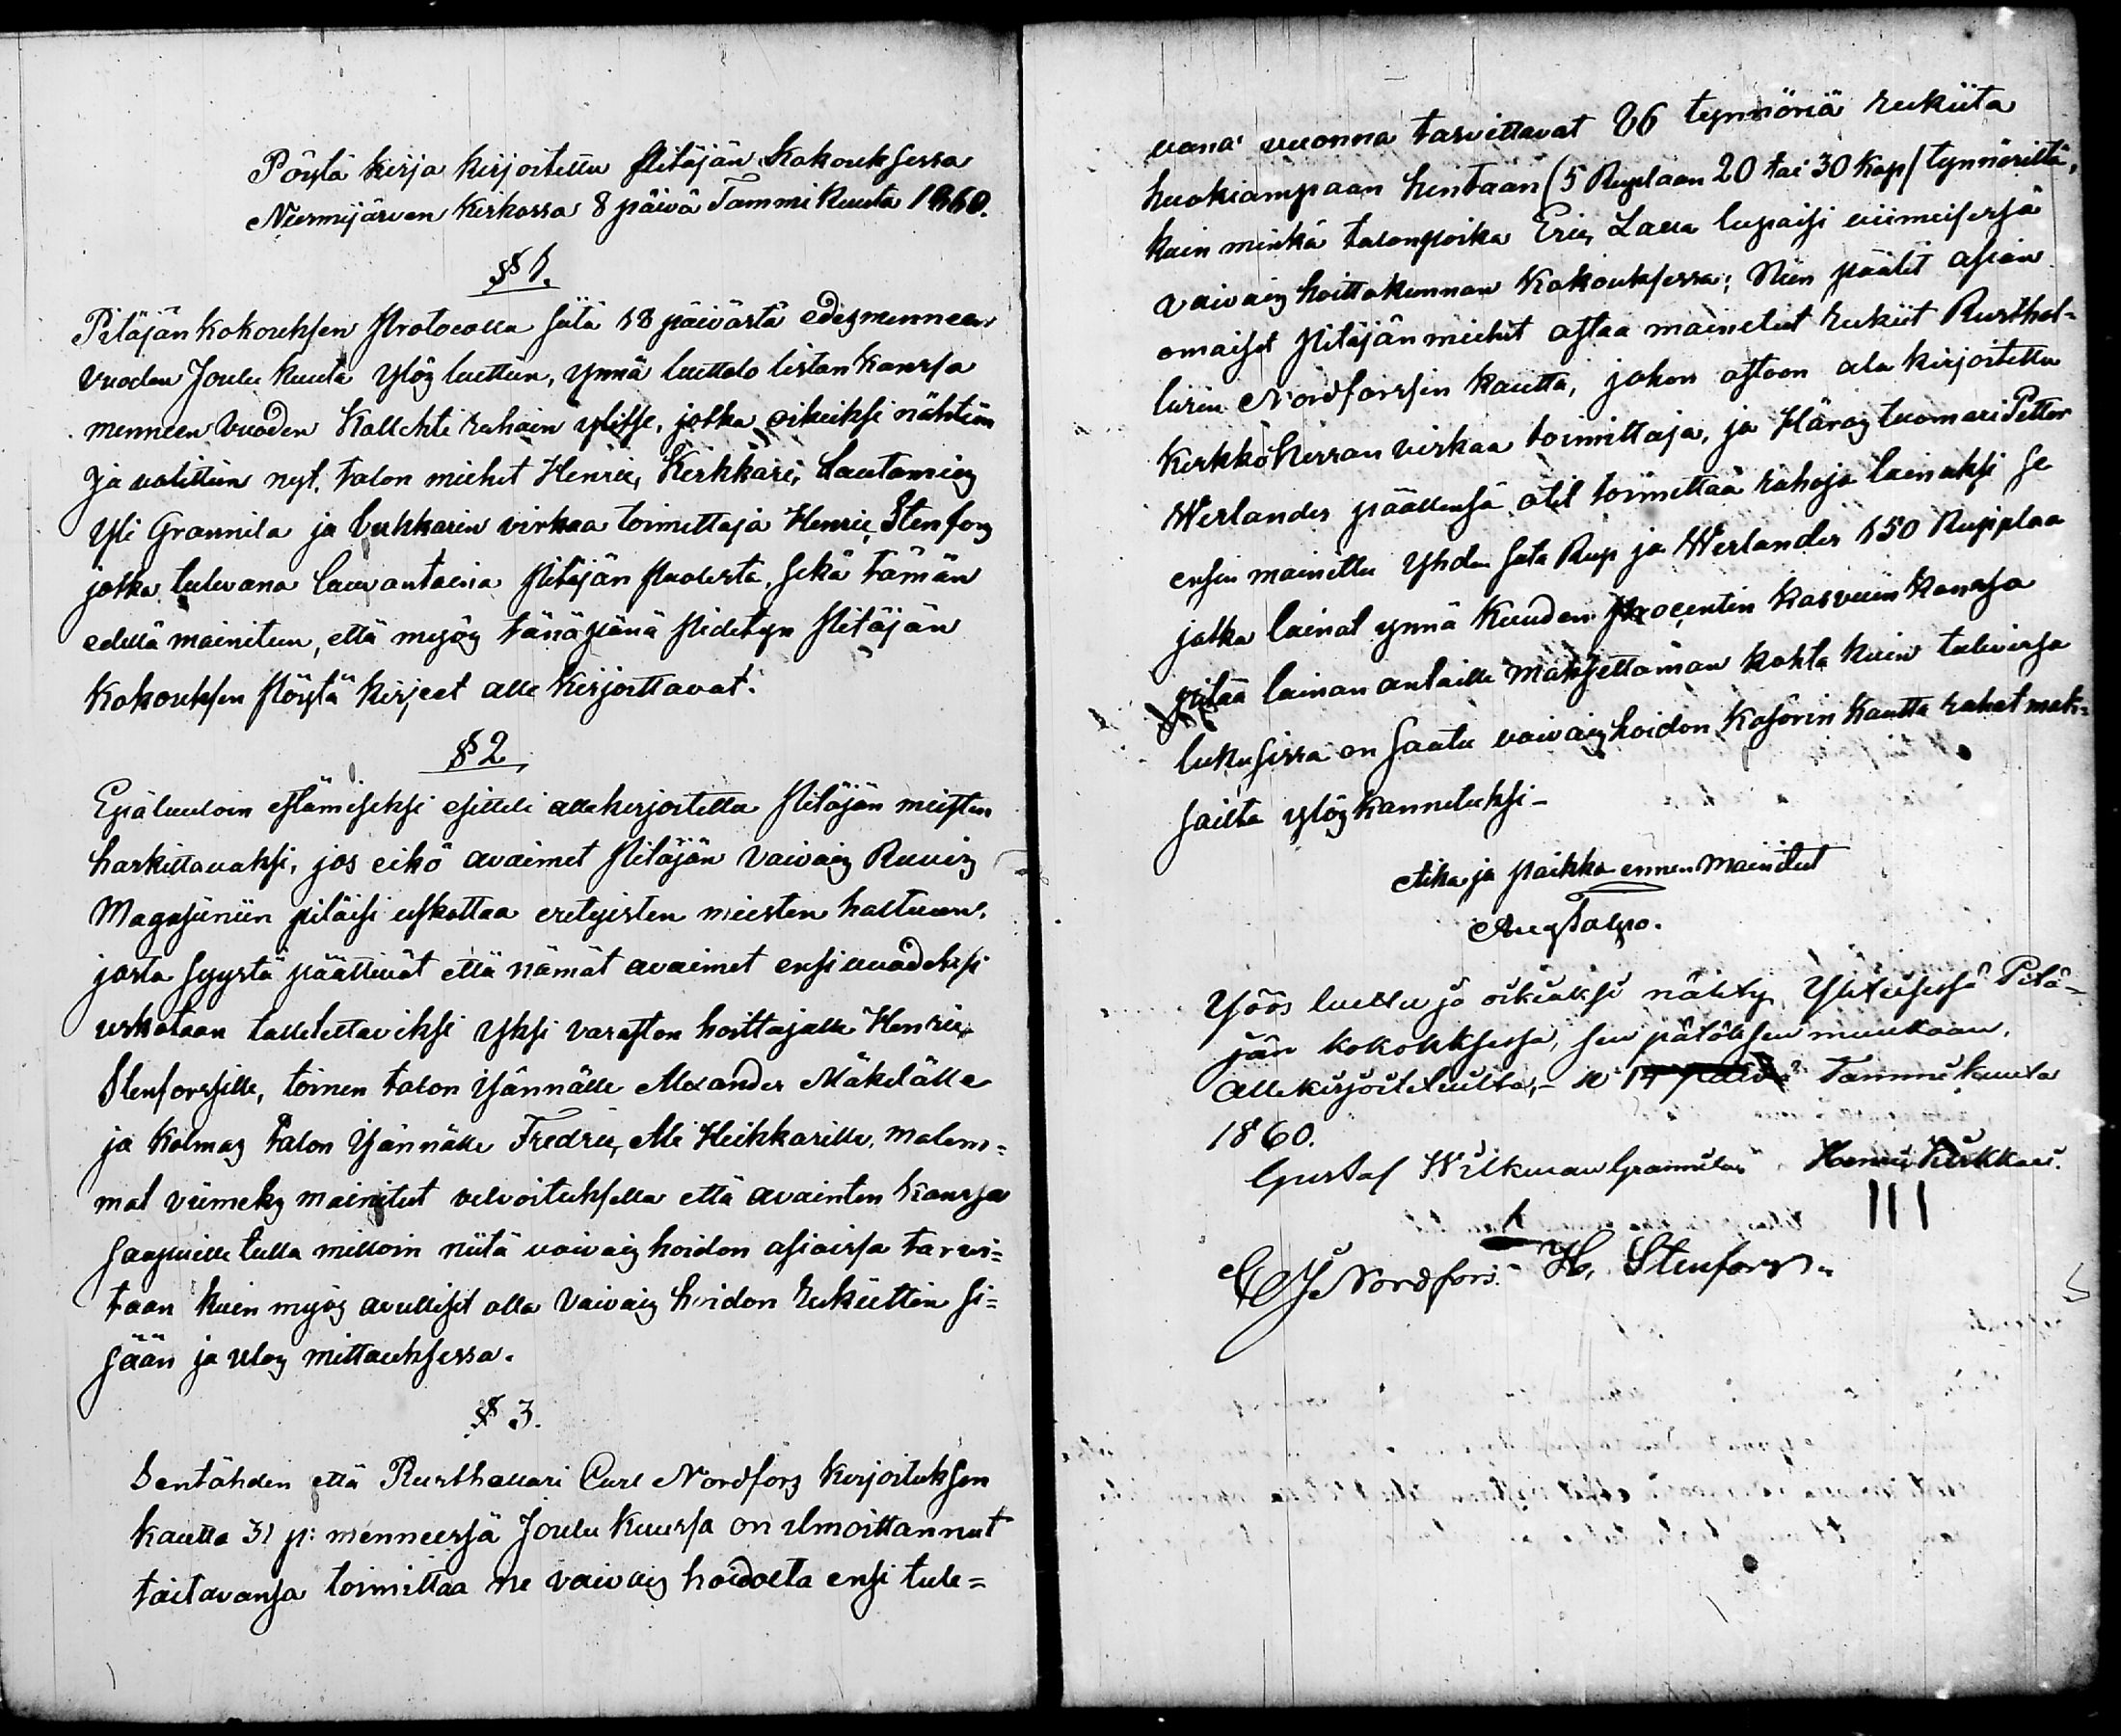 Pöytä kirja kirjoitettu Pitäjän Kokouksessa
Nurmijärven Kirkossa 8 päivä Tammi Kuuta 1860.
§ 1.
Pitäjän kokouksen Protocolla siitä 18 päivästä edesmenneen
vuoden Joulu kuuta ylös luettiin, ynnä luettelo listan kanssa
menneen vuoden Kollehti rahain ylitse, jotka oikeiksi nähtiin
ja valittiin nyt, talon miehet Henric Kirkkari, Lautamies
Yli Grannila ja lukkarin virkaa toimittaja Henric Stenfors
jotka tulevana lauvantaina Pitäjän Puolesta, sekä tämän
edellä mainitun, että myös tänäpänä Pidetyn Pitäjän
Kokouksen Pöytä kirjeet alle kirjoittavat.
§ 2
Epäluuloin estämiseksi esitteli allekirjoitettu Pitäjän miesten
harkittavaksi, jos eikö avaimet Pitäjän Vaivais Ruuis
Magasiiniin pitäisi uskottaa erityisten miesten haltuun,
josta syystä päättivät että nämät avaimet ensi vuodeksi
uskotaan talletettaviksi yksi varaston hoittajalle Henric
Stenforssille, toinen talon Isännälle Alexander Mäkelälle
ja kolmas talon Isännälle Fredric Ali Heikkarille, molem=
mat viimeks mainitut velvoituksella että avainten kanssa
saapuille tulla milloin niitä vaivais hoidon asioissa tarvi=
taan kuin myös avulliset olla Vaivais hoidon rukiitten si=
sään ja ulos mittauksessa.
§ 3.
Sentähden että Rusthollari Carl Nordfors Kirjoituksen
kautta 31 p: menneessä Joulu kuussa on ilmoittannut
taitavansa toimittaa ne vaivais hoidolta ensi tule=
vana vuonna tarvittavat 26 tynnöriä rukiita
huokiampaan hintaan (5 Ruplaan 20 tai 30 Kop/ tynnöriltä,
kuin minkä talonpoika Eric Laua lupaisi viimeisessä
Vaivais hoittokunnan Kokouksessa; Niin päätit asian
omaiset Pitäjän miehet astaa mainetut rukiit Rusthol=
larin Nordforssin kautta, johon astoon ala kirjoitettu
Kirkkoherran virkaa toimittaja, ja Häras tuomari Petter
Werlander päällensä otit toimittaa rahoja lainaksi se
ensin mainittu yhden sata Rup ja Werlander 150 Rupplaa
jotka lainat ynnä kuuden Procentin kasvuin kanssa
pitää lainan antaille maksettaman kohta kuin tulevissa
lukusissa on saatu vaivaishoidon Kasörin kautta rahat mak=
sailta ylöskannetuksi –
Aika ja paikka ennen mainitut
Aug Talpo.
Ylös luettu ja oikiaksi nähty Yhteisessä Pitä=
jän kokouksessa, sen pätöksen muukaan,
allekirjoitetuilta, – Tammikuuta
1860.
Gustaf Wilkman Grannila Henric Kirkkari.
C J Nordfors. H. Stenfors.